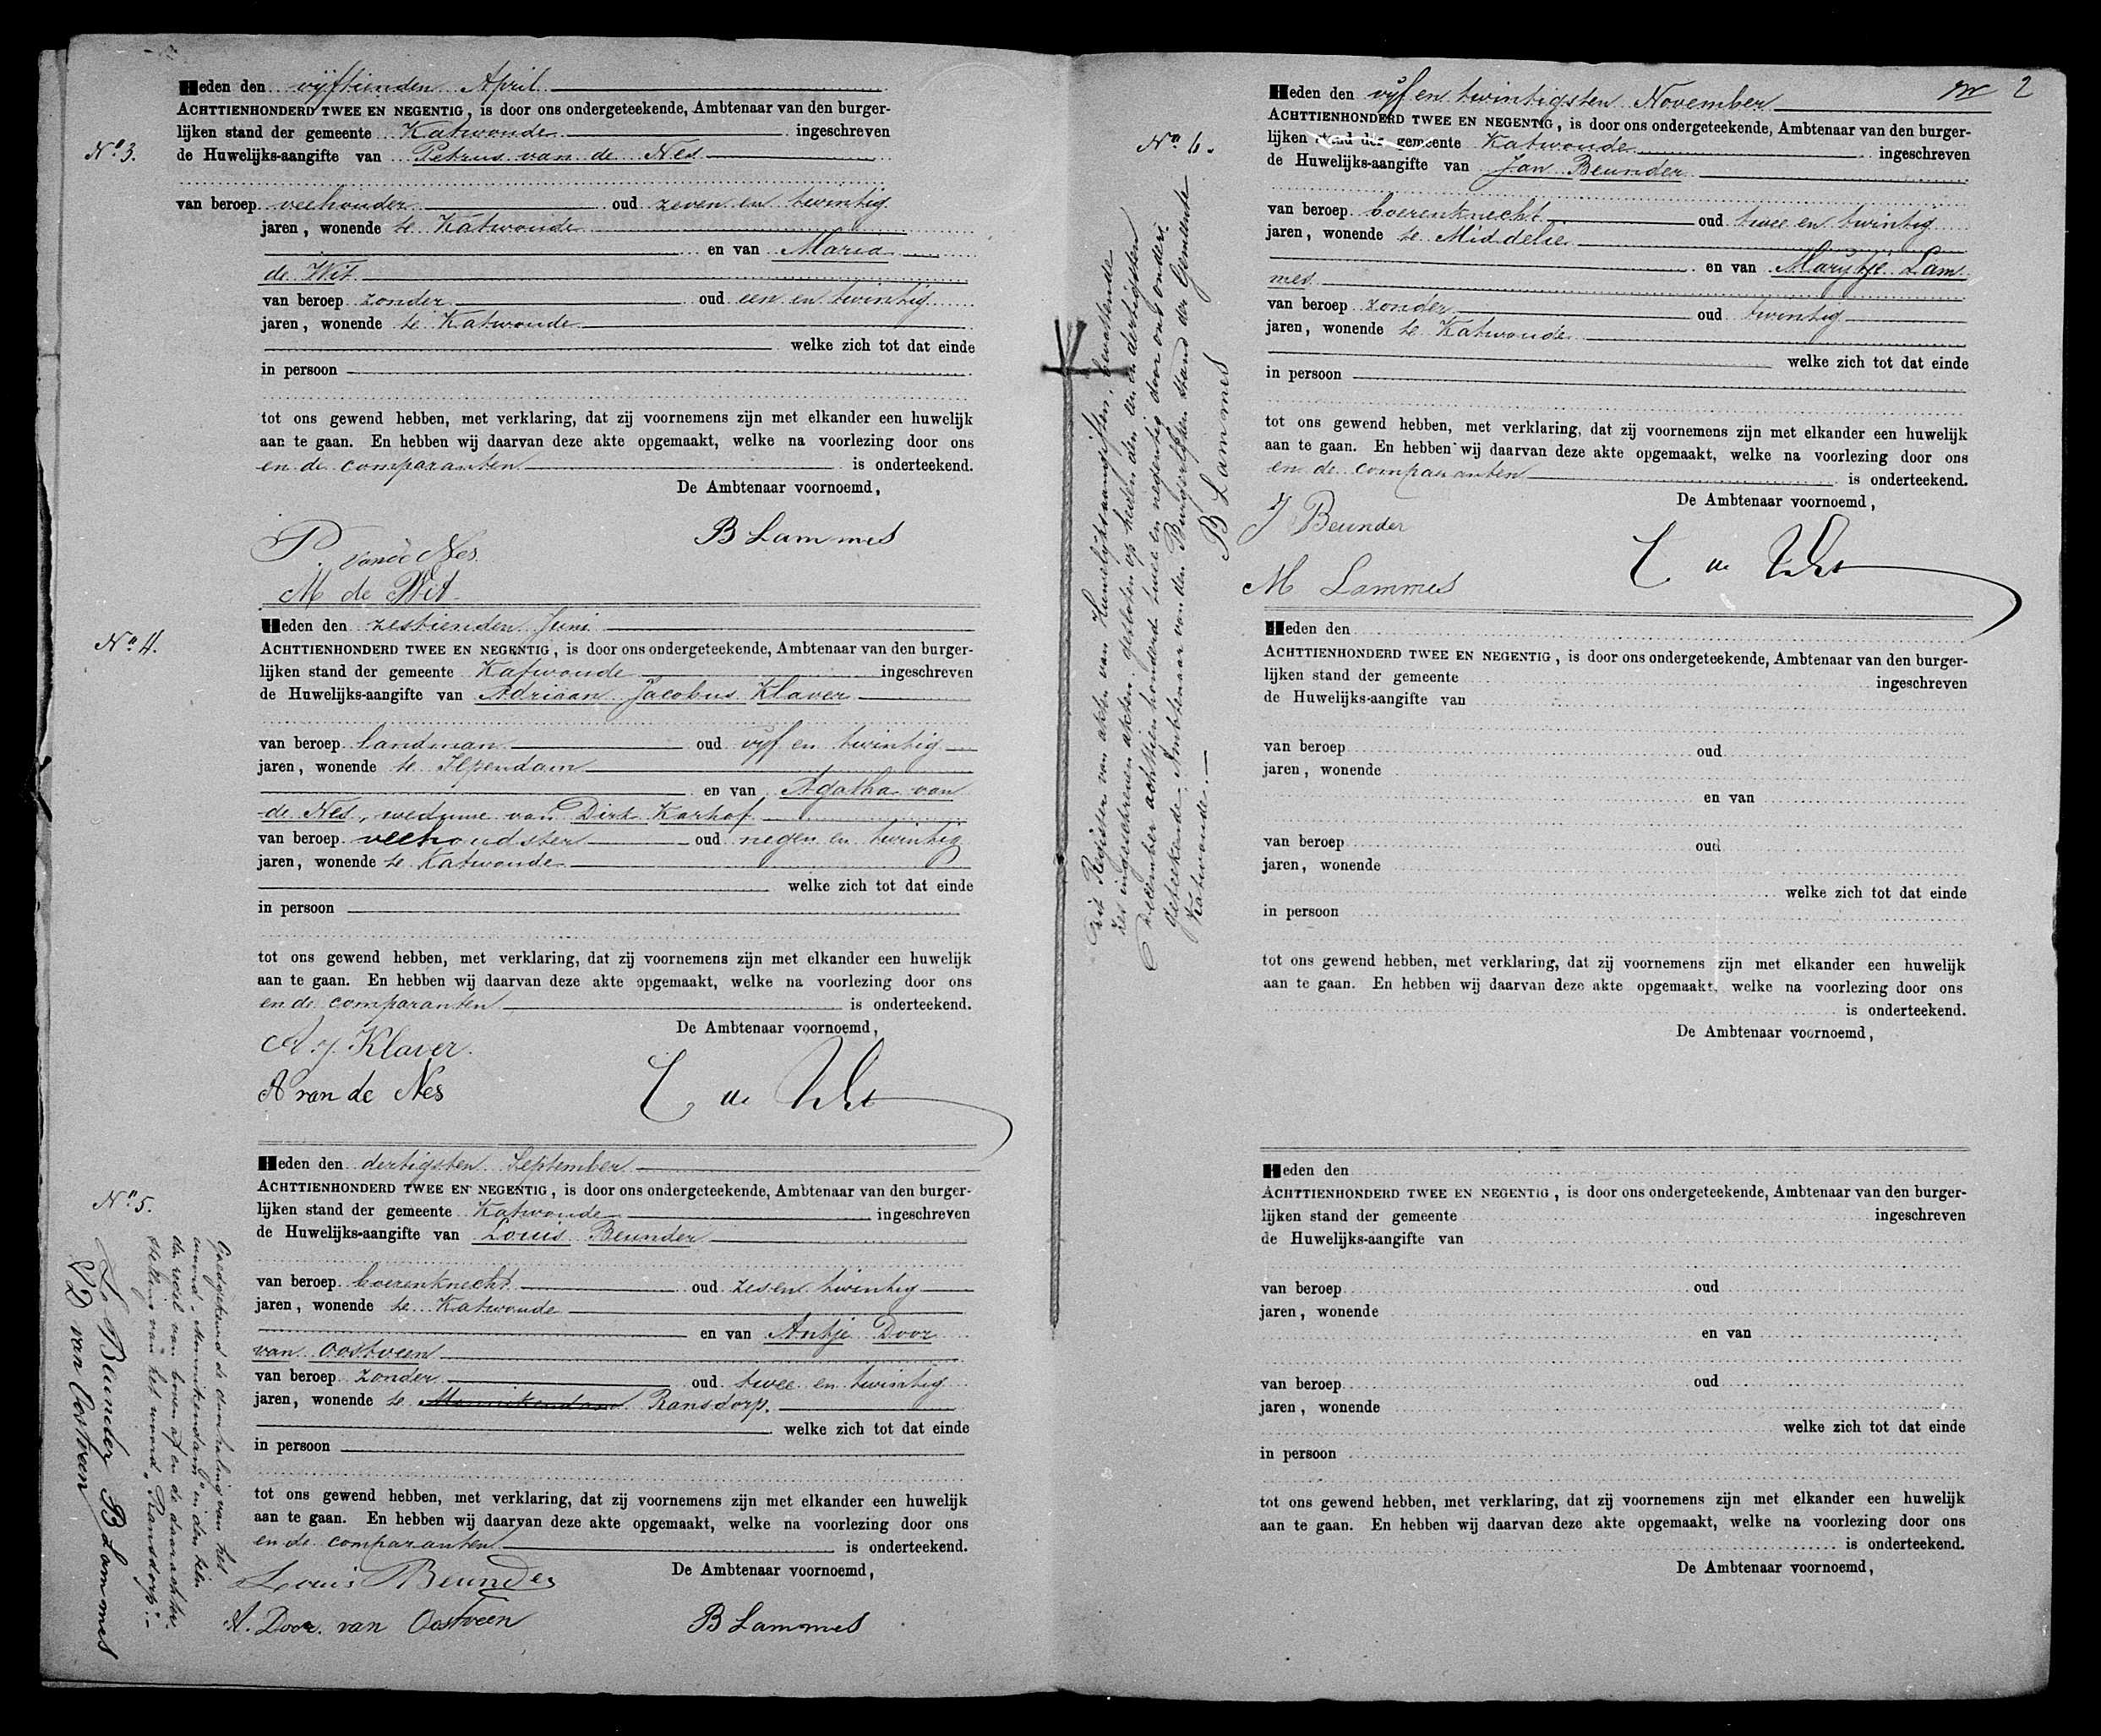 Heden den vijftienden April
ACHTTIENHONDERD TWEE EN NEGENTIG, is door ons ondergeteekende, Ambtenaar van den burger-
lijken stand der gemeente Katwoude ingeschreven
No 3.
de Huwelijks-aangifte van Petrus van de Nes
van beroep veehouder oud zeven en twintig
jaren, wonende te Katwoude
en van Maria
de Wit
van beroep zonder oud een en twintig
jaren, wonende te Katwoude
welke zich tot dat einde
in persoon
tot ons gewend hebben, met verklaring, dat zij voornemens zijn met elkander een huwelijk
aan te gaan. En hebben wij daarvan deze akte opgemaakt, welke na voorlezing door ons
en de comparanten is onderteekend.
De Ambtenaar voornoemd,
B Lammes
P. van de Nes.
M de Wit
Heden den zestienden Juni
No 4.
ACHTTIENHONDERD TWEE EN NEGENTIG, is door ons ondergeteekende, Ambtenaar van den burger-
lijken stand der gemeente Katwoude ingeschreven
de Huwelijks-aangifte van Adriaan Jacobus Klaver
van beroep landman oud vijf en twintig
jaren, wonende te Ilpendam
en van Agatha van
de Nes, weduwe van Dirk Karhof
van beroep veehoudster oud negen en twintig
jaren, wonende te Katwoude
welke zich tot dat einde
in persoon
tot ons gewend hebben, met verklaring, dat zij voornemens zijn met elkander een huwelijk
aan te gaan. En hebben wij daarvan deze akte opgemaakt, welke na voorlezing door ons
en de comparanten is onderteekend.
De Ambtenaar voornoemd,
A. J. Klaver.
A van de Nes
Heden den dertigsten September
ACHTTIENHONDERD TWEE EN NEGENTIG, is door ons ondergeteekende, Ambtenaar van den burger-
No 5.
lijken stand der gemeente Katwoude ingeschreven
de Huwelijks-aangifte van Louis Beunder
van beroep boerenknecht oud zes en twintig
jaren, wonende te Katwoude
en van Antje Door
van Oostveen
van beroep zonder oud twee en twintig
jaren, wonende te Monnikendam Ransdorp.
welke zich tot dat einde
in persoon
tot ons gewend hebben, met verklaring, dat zij voornemens zijn met elkander een huwelijk
aan te gaan. En hebben wij daarvan deze akte opgemaakt, welke na voorlezing door ons
en de comparanten is onderteekend.
De Ambtenaar voornoemd,
Louis Beunder
A. Door. van Oostveen
B Lammes
Goedgekeurd de doorhaling van het
woord "Monnikendam" in den
regel van boven af en de daarachter
stelling van het woord "Ransdorp".
L. Beunder B Lammes
van Oostveen
Dit Register van akten van Huwelijksaangiften, bevattende
zes ingeschreven akten, gesloten op heden den een en dertigsten
December achttienhonderd twee en negentig door ons onder-
geteekende, Ambtenaar van den Burgerlijken stand der Gemeente
Katwoude.
B Lammes
2
Heden den vijf en twintigsten November
ACHTTIENHONDERD TWEE EN NEGENTIG, is door ons ondergeteekende, Ambtenaar van den burger-
No 6.
lijken stand der gemeente Katwoude ingeschreven
de Huwelijks-aangifte van Jan Beunder
van beroep boerenknecht oud twee en twintig
jaren, wonende te Middelie
en van Marijtje Lam
mes
van beroep zonder oud twintig
jaren, wonende te Katwoude
welke zich tot dat einde
in persoon
tot ons gewend hebben, met verklaring, dat zij voornemens zijn met elkander een huwelijk
aan te gaan. En hebben wij daarvan deze akte opgemaakt, welke na voorlezing door ons
en de comparanten is onderteekend.
De Ambtenaar voornoemd,
J Beunder
M Lammes
Heden den
ACHTTIENHONDERD TWEE EN NEGENTIG, is door ons ondergeteekende, Ambtenaar van den burger-
lijken stand der gemeente ingeschreven
de Huwelijks-aangifte van
van beroep oud
jaren, wonende
en van
van beroep oud
jaren, wonende
welke zich tot dat einde
in persoon
tot ons gewend hebben, met verklaring, dat zij voornemens zijn met elkander een huwelijk
aan te gaan. En hebben wij daarvan deze akte opgemaakt, welke na voorlezing door ons
is onderteekend.
De Ambtenaar voornoemd,
Heden den
ACHTTIENHONDERD TWEE EN NEGENTIG, is door ons ondergeteekende, Ambtenaar van den burger-
lijken stand der gemeente ingeschreven
de Huwelijks-aangifte van
van beroep oud
jaren, wonende
en van
van beroep oud
jaren, wonende
welke zich tot dat einde
in persoon
tot ons gewend hebben, met verklaring, dat zij voornemens zijn met elkander een huwelijk
aan te gaan. En hebben wij daarvan deze akte opgemaakt, welke na voorlezing door ons
is onderteekend.
De Ambtenaar voornoemd,